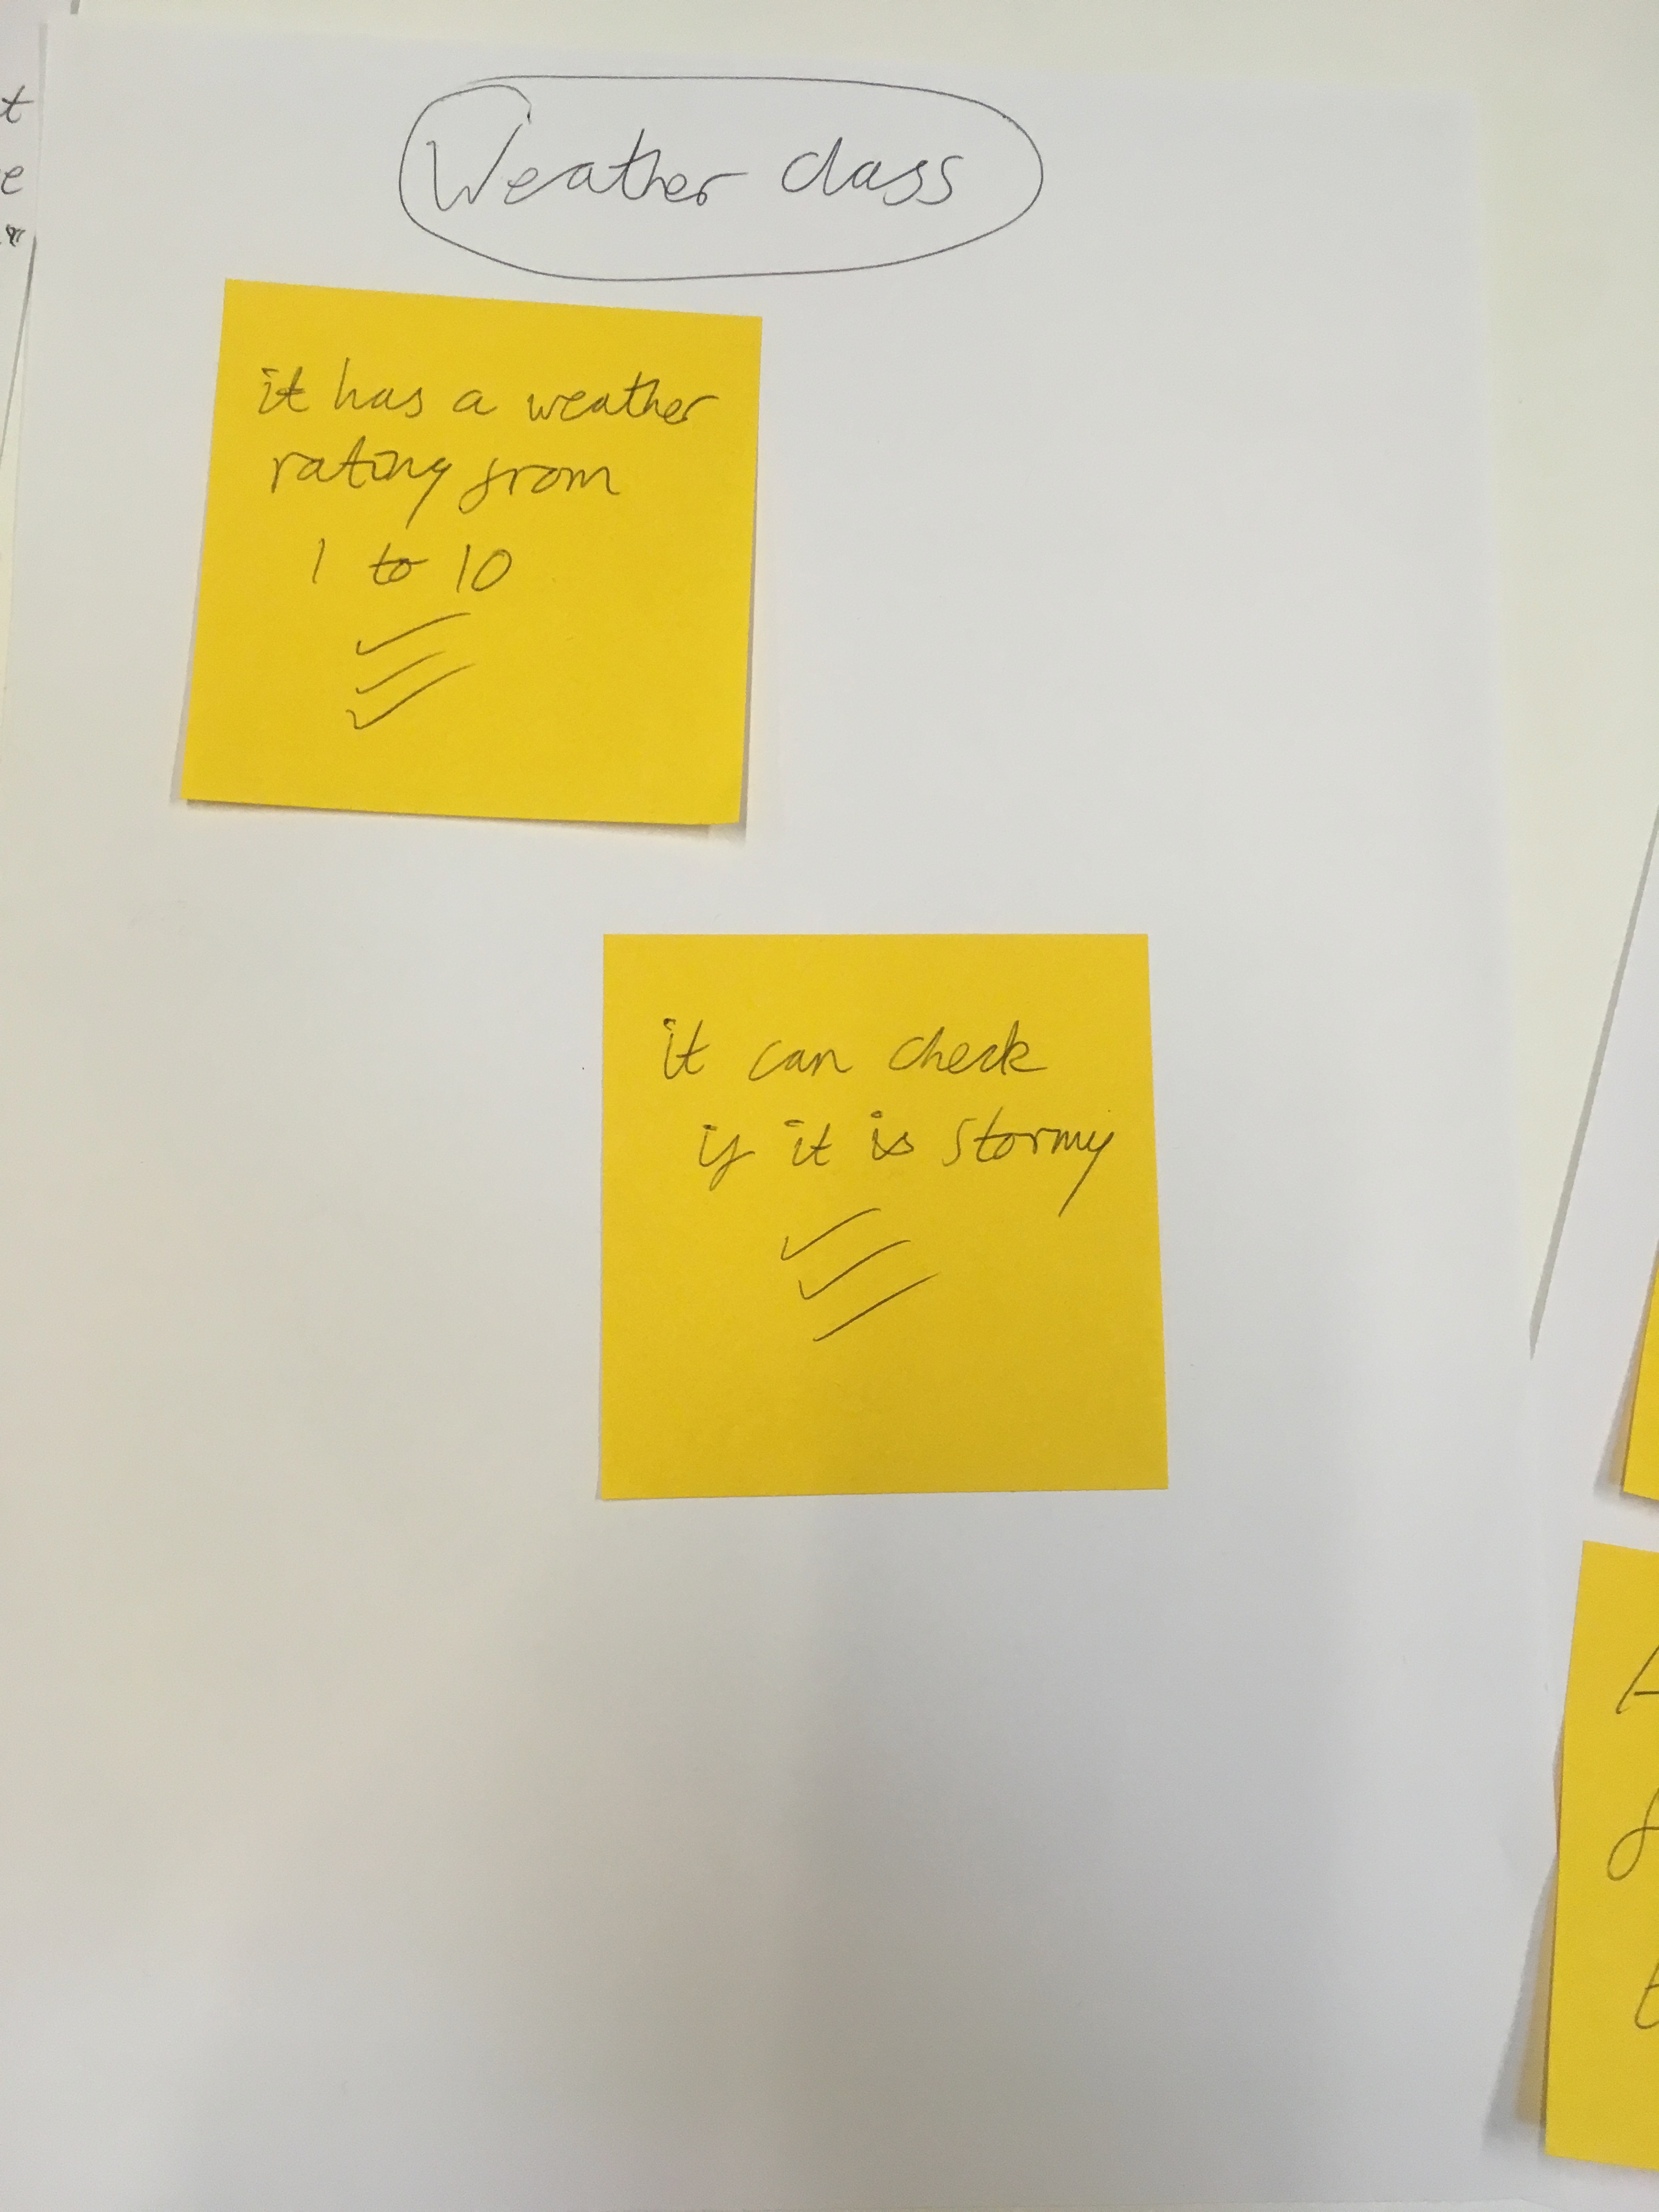 Weather class
it has a weather
rating from
1 to 10
it can check
if it is stormy
t
e
A